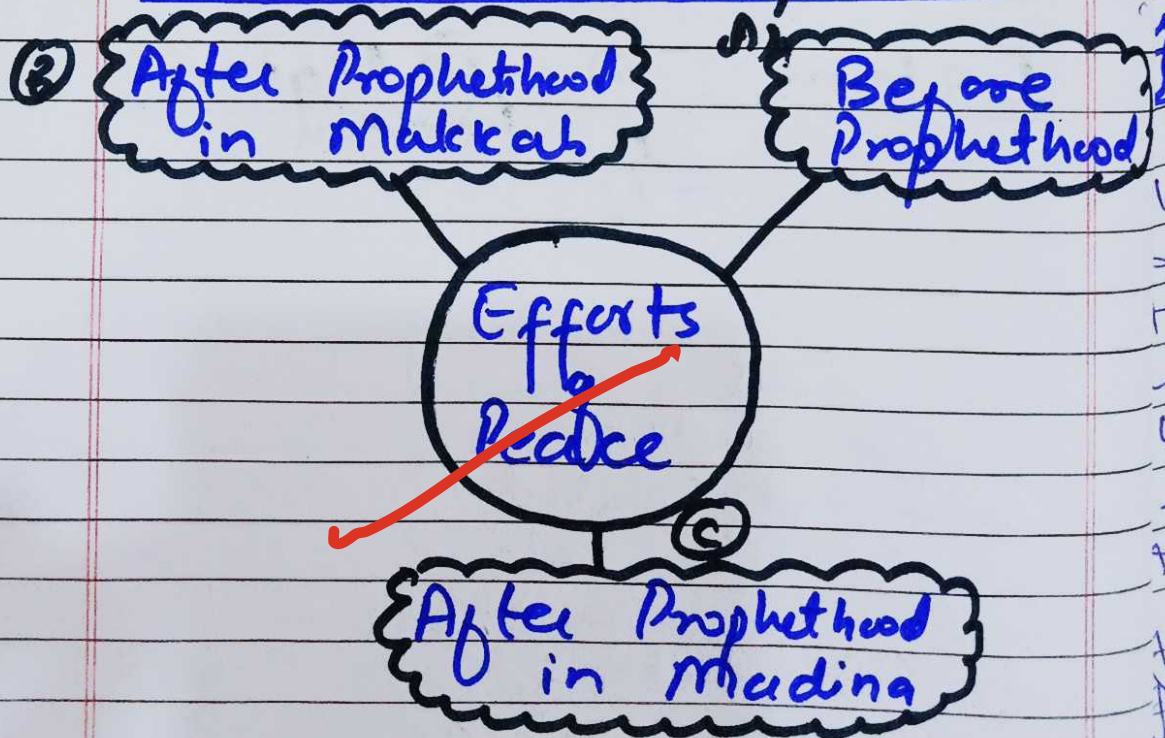 B After Prophetihood
in Makkah
A
Before
Prophethood
Efforts
&
Peace
C
After Prophethood
in Madina